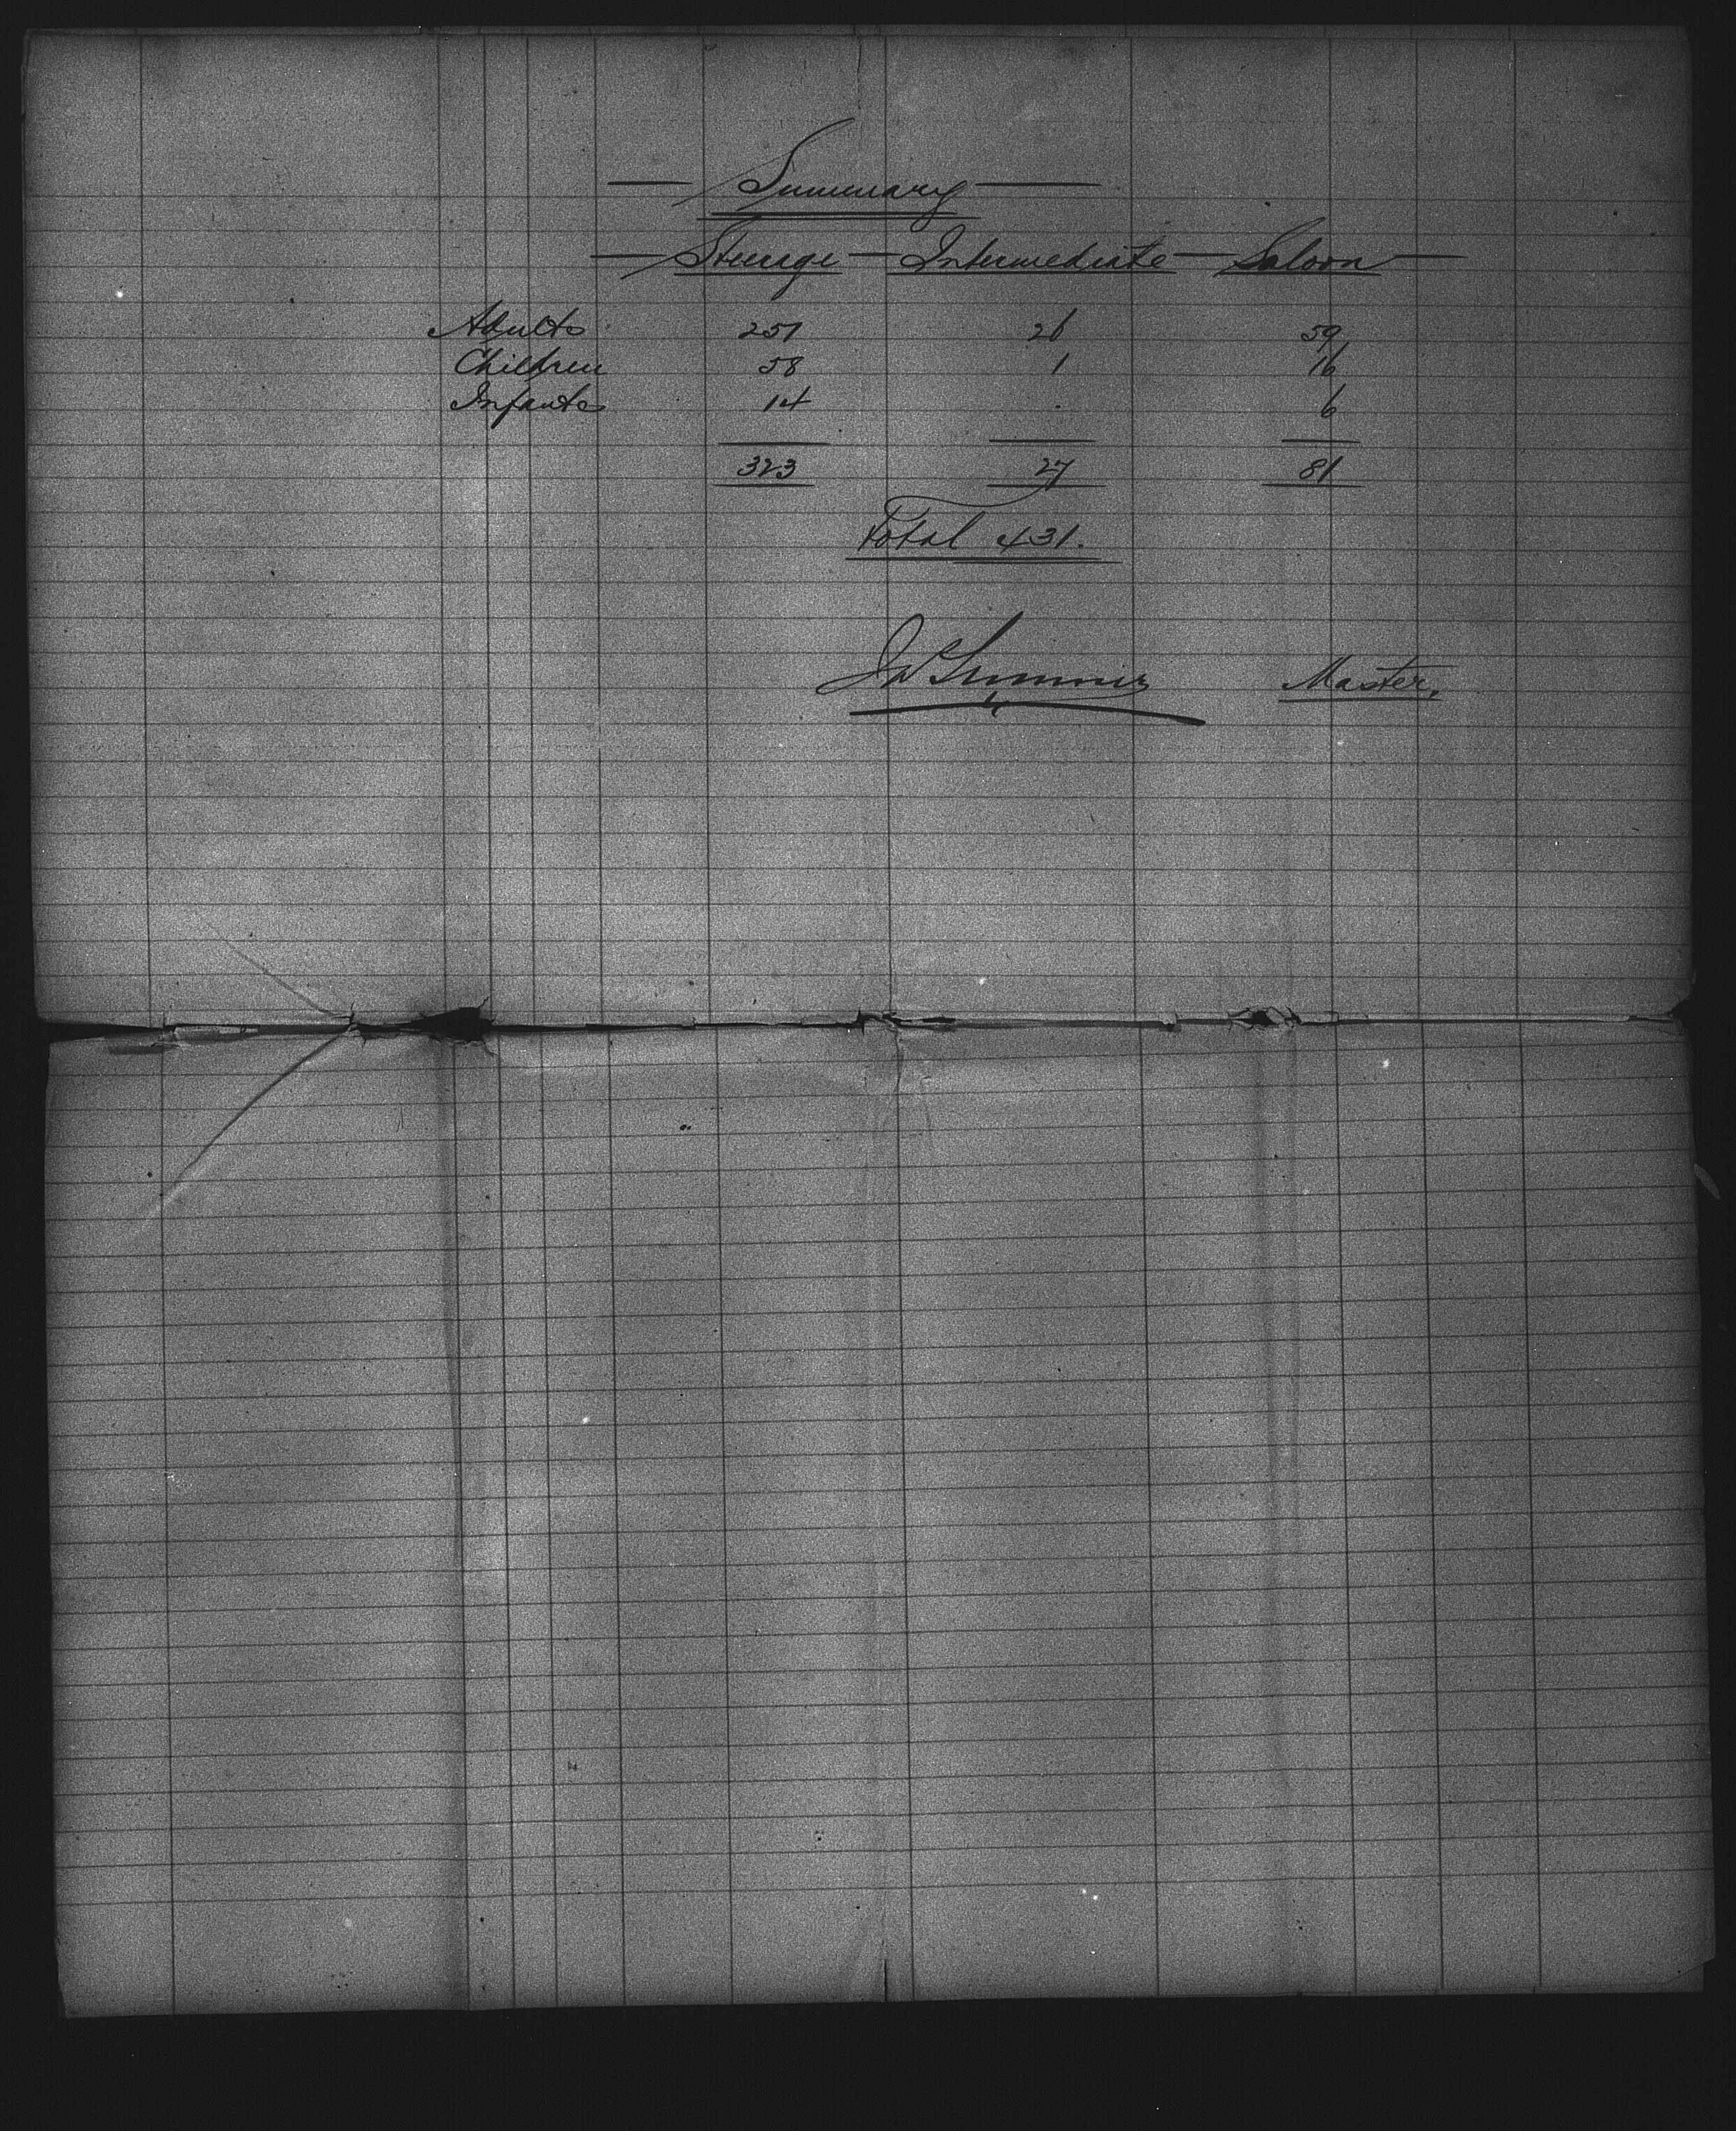 — Summary —
— Steerage — Intermediate — Saloon —
Adults 251 26 59
Children 58 1 16
Infants 14 . 6
323 27 81
Total 431.
Master,